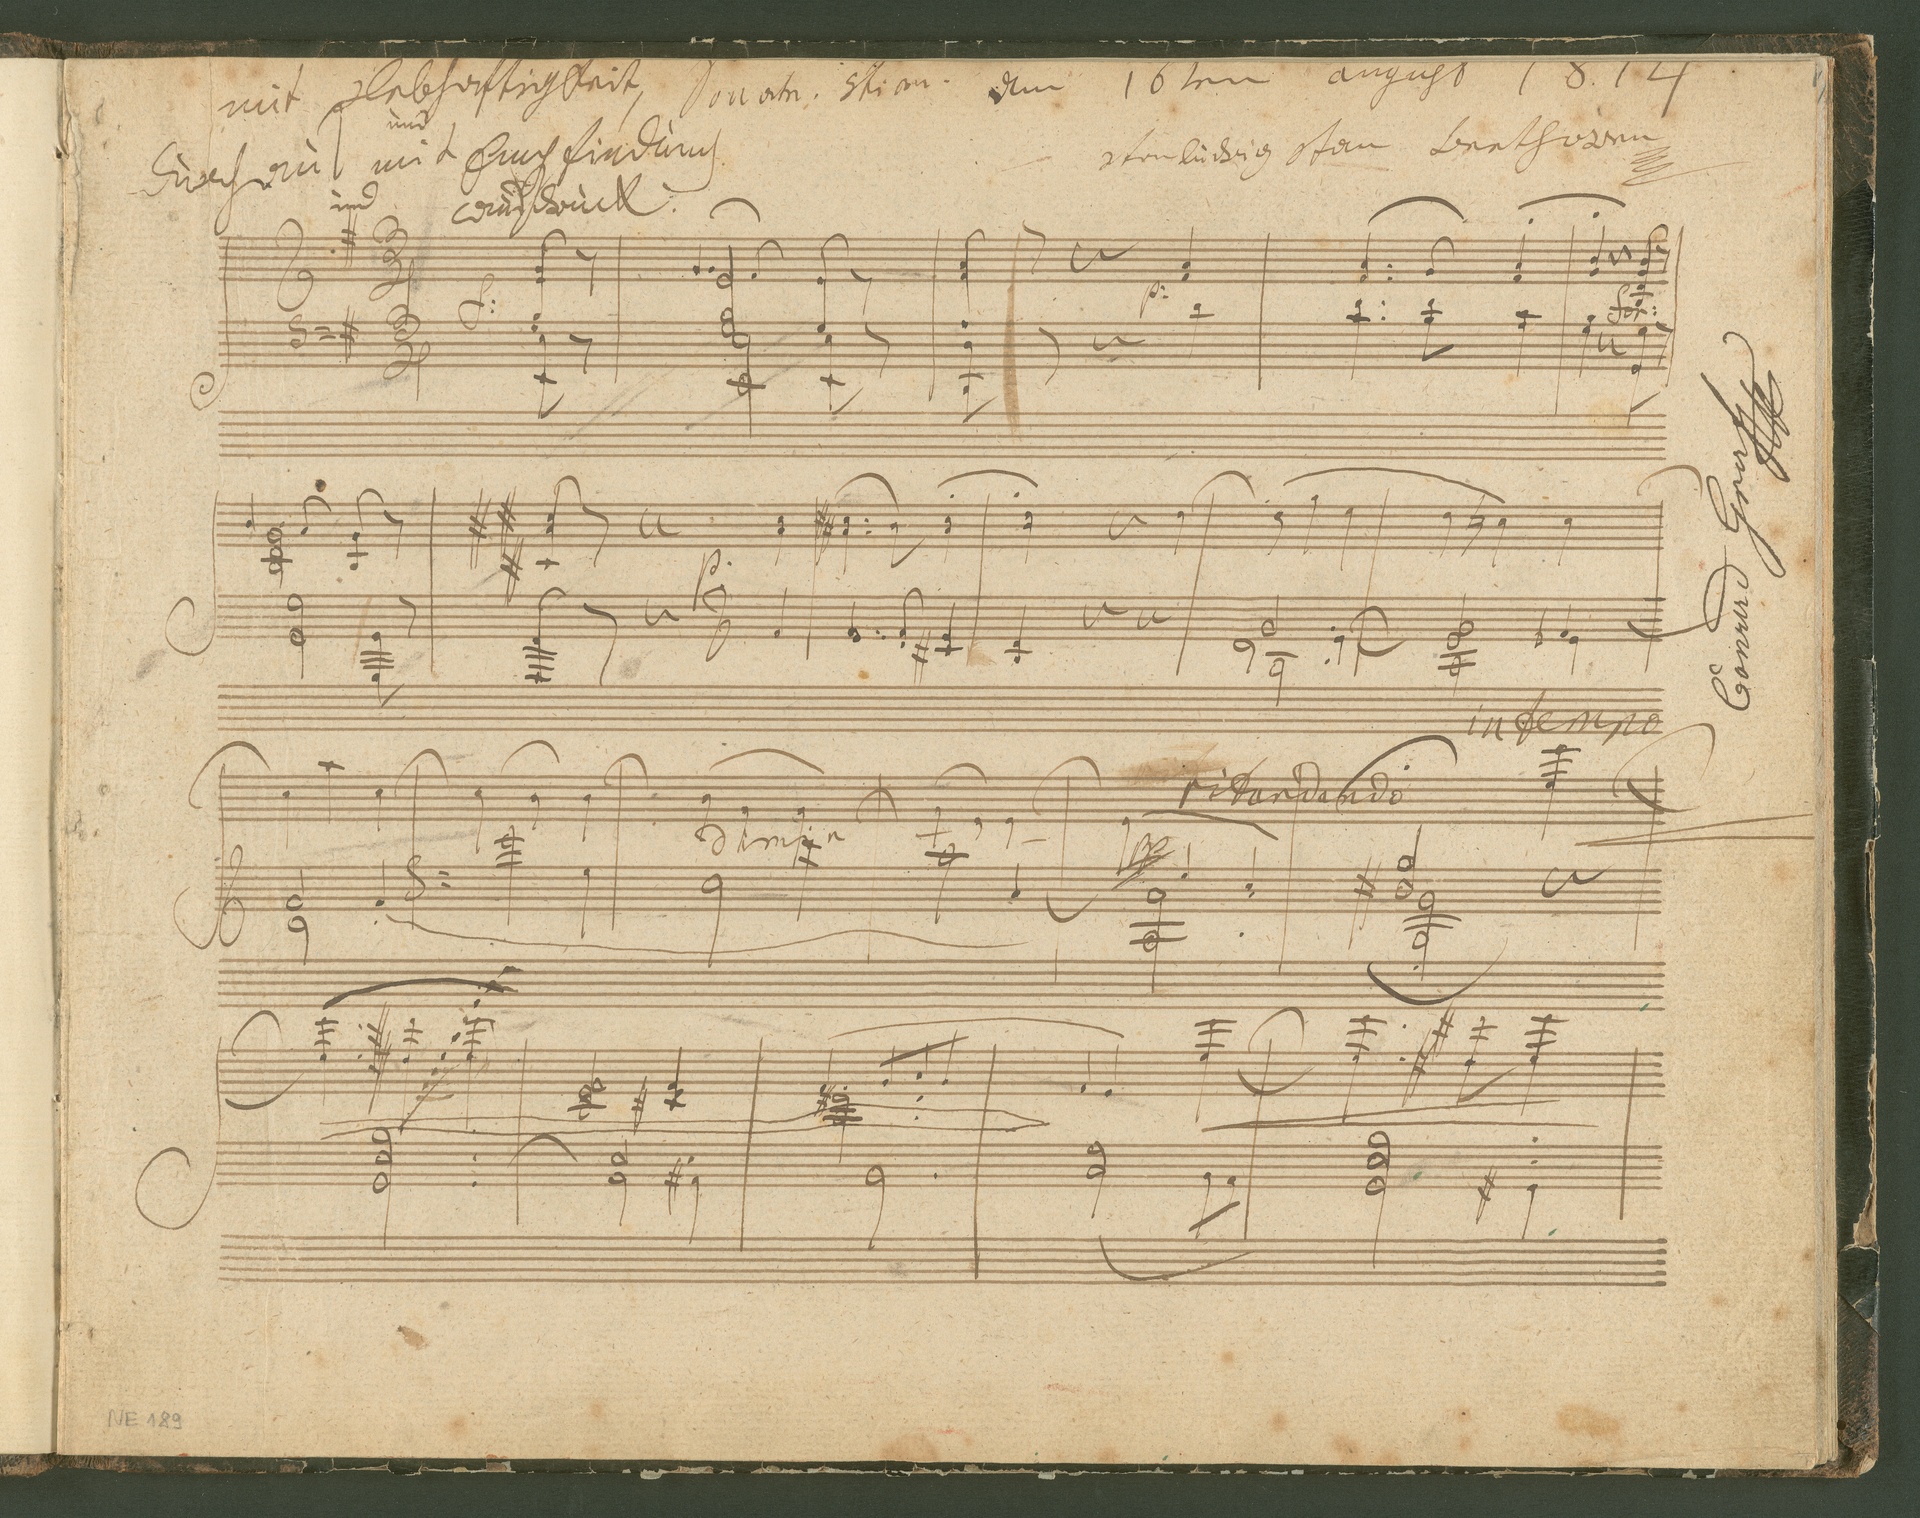 mit Lebhaftigkeit, am 16ten august 1814
und
durchaus mit Empfindung von ludwig van Beethowen
und ausdruck.
f:
p:
for:
p:
in tempo
ritardando
dimin
pp
Conrad Graf
NE 189